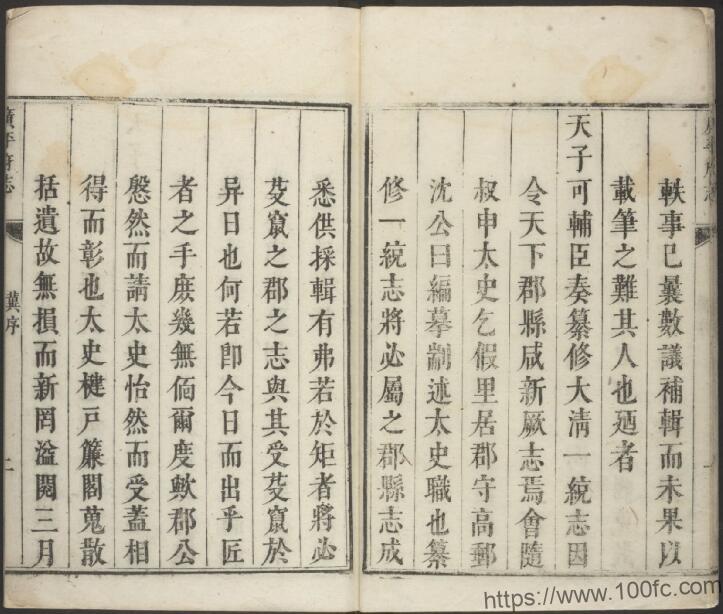 軼事已曩數議補輯而未果以
載筆之難其人也廼者
天子可輔臣奏纂修大清一統志因
令天下郡縣咸新厥志焉會隨
叔申太史乞假里居郡守高郵
沈公曰編摹劀述太史職也纂
修一統志將必屬之郡縣志成
悉供採輯有弗若於矩者將必
芟竄之郡之志與其受芟竄於
异日也何若卽今日而出乎匠
者之手庶幾無偭爾度歟郡公
慇然而請太史怡然而受蓋相
得而彰也太史楗戸簾閣蒐散
括遺故無損而新罔溢閱三月
廣平府志
冀序
二
https://www.100fc.com